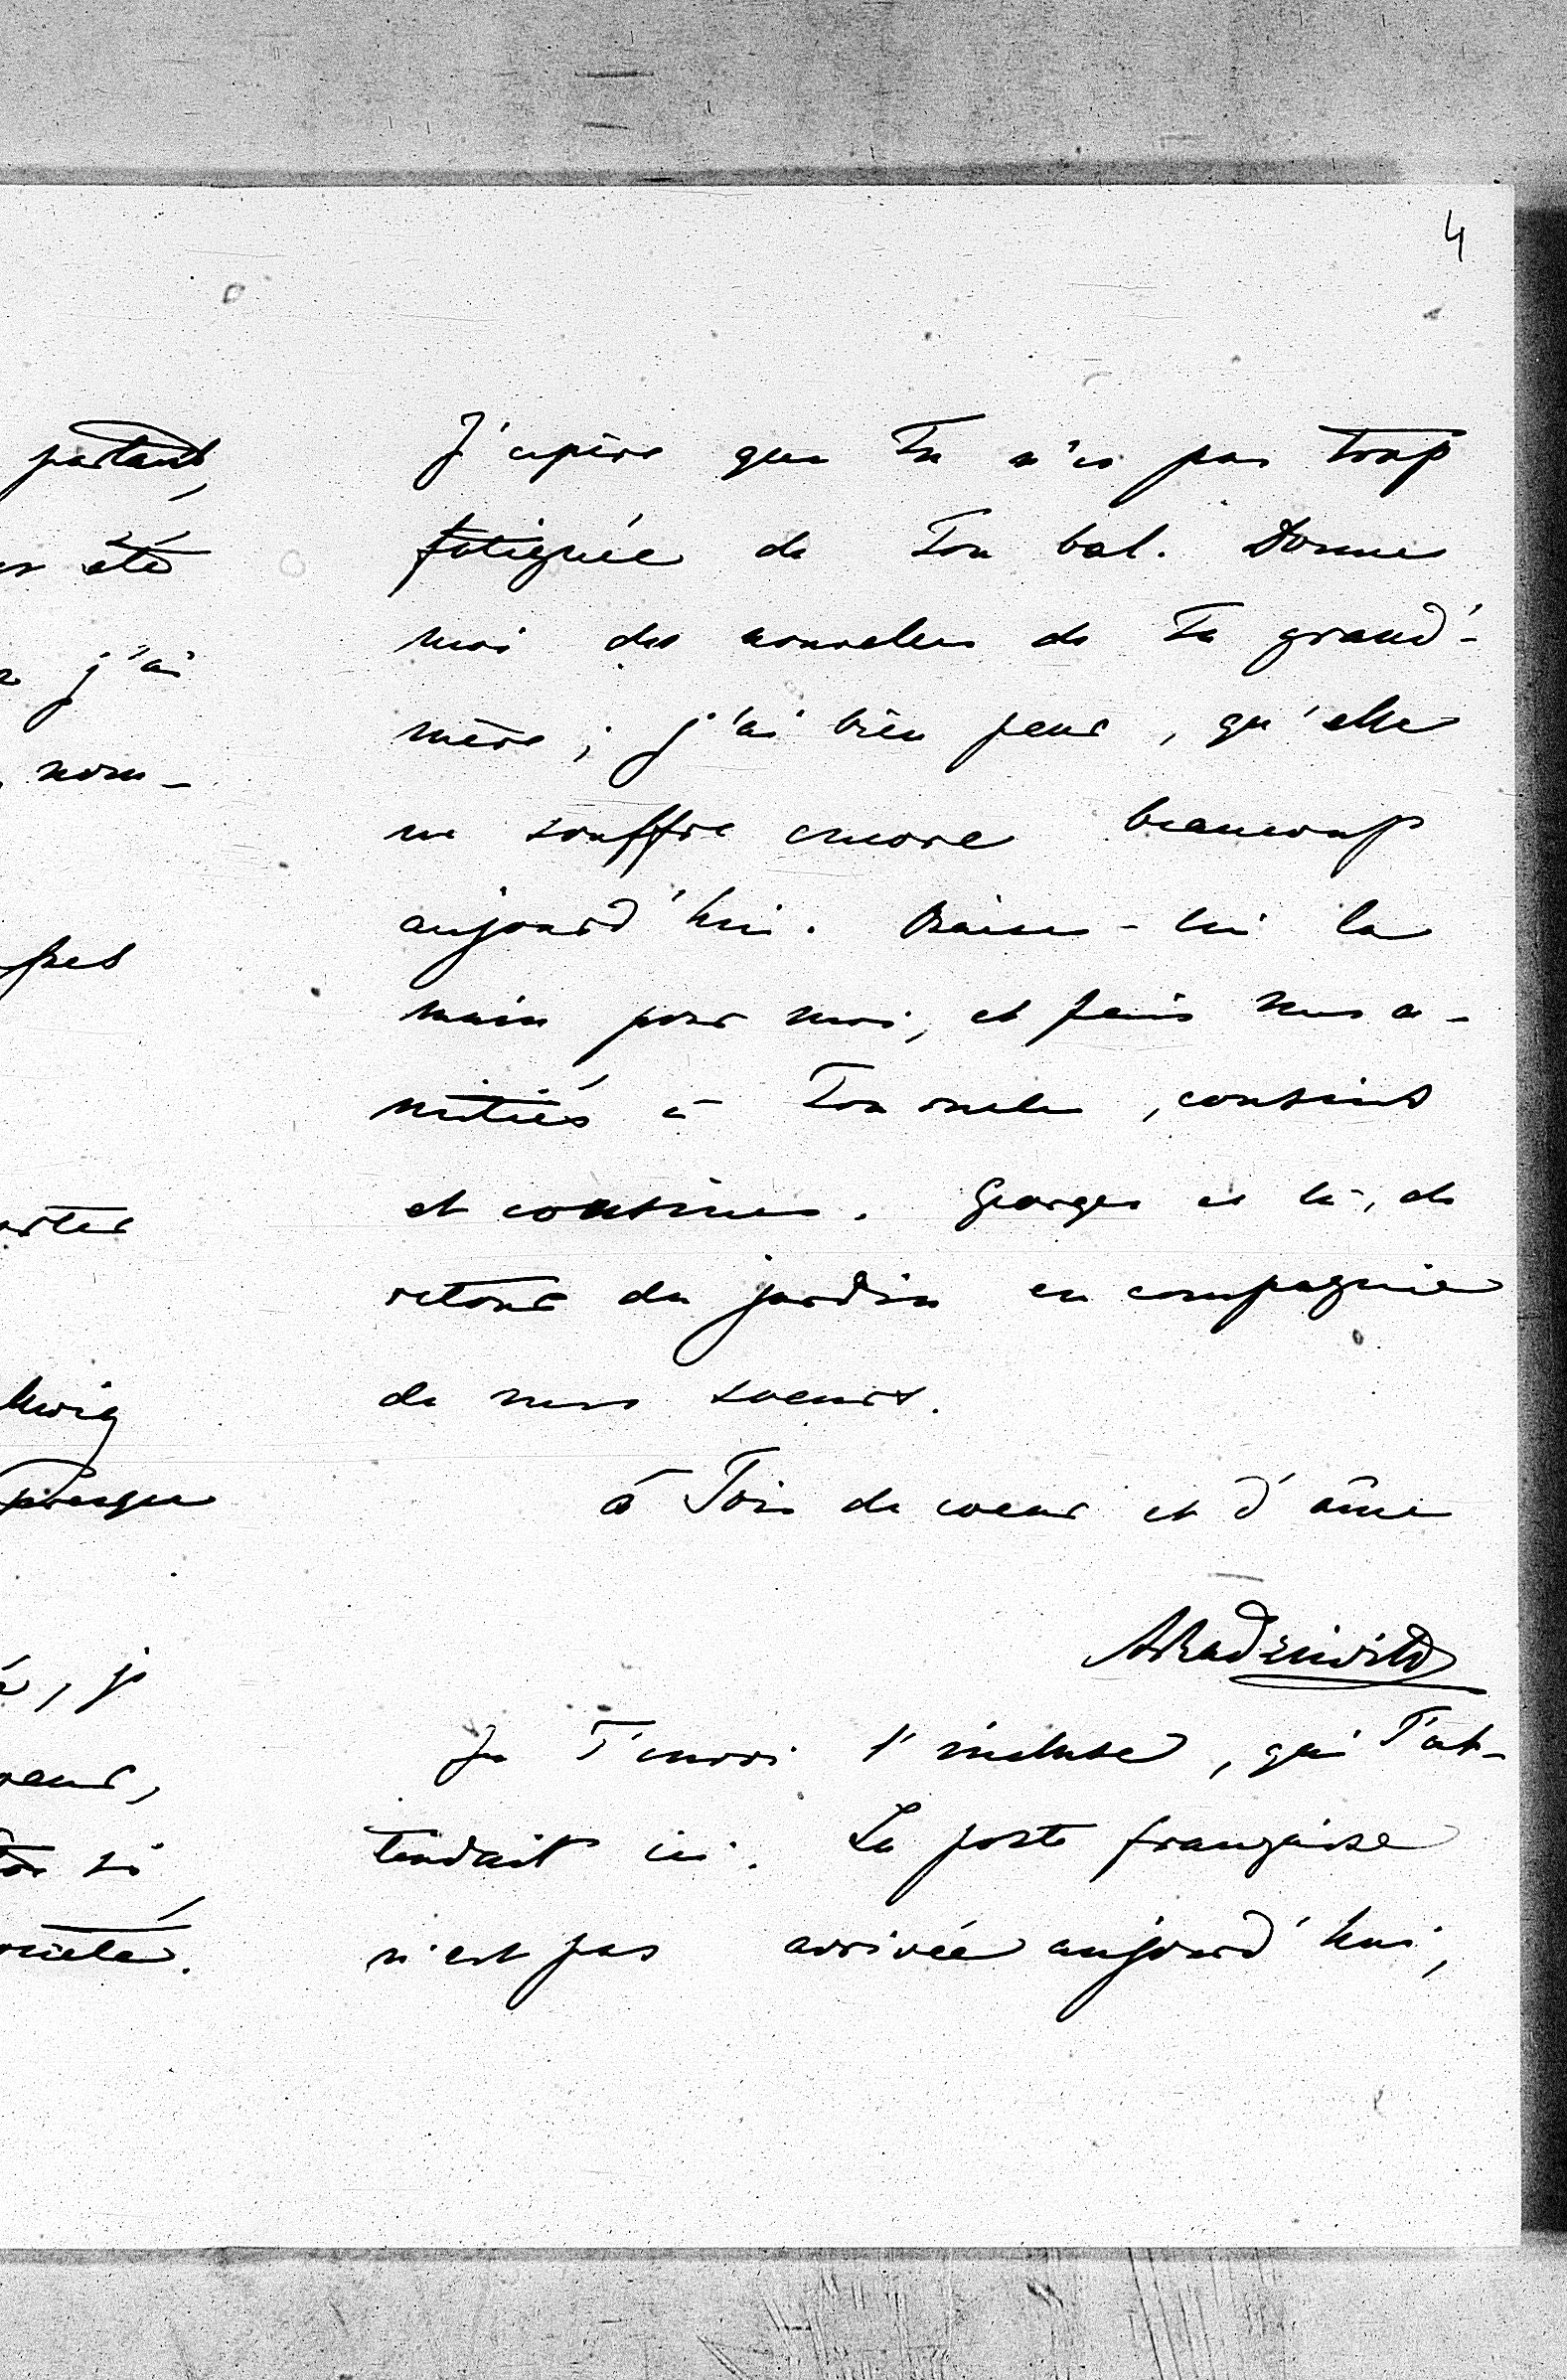 4
partant,
été
j'ai
nom-
J'espère que Tu n'es pas trop
fatiguée de Ton bal. Donne
moi des nouvelles de Ta grand'-
mère ; j'ai bien peur , qu'elle
ne souffre encore beaucoup
aujourd'hui. Baise - lui la
main pour moi, et fais mes a-
mitiés à Ton oncle , cousins
et cousines . Georges est là , de
retour du jardin en compagnie
de mes soeurs .
à Toi de coeur et d'âme
Je T'envoi l'incluse , qui T'at-
tendait ici . La poste française
n'est pas arrivée aujourd'hui ,